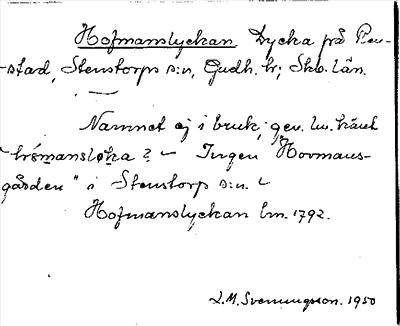 Hofmanslyckan. Lycka på Pen-
stad, Stenstorps s:n, Gudh. hr, Skb. län.
Namnet ej i bruk;
? – Ingen "Hovmans-
gården" i Stenstorp s:n. –
Hofmanslyckan lm. 1792.
L.M. Svenungsson. 1950